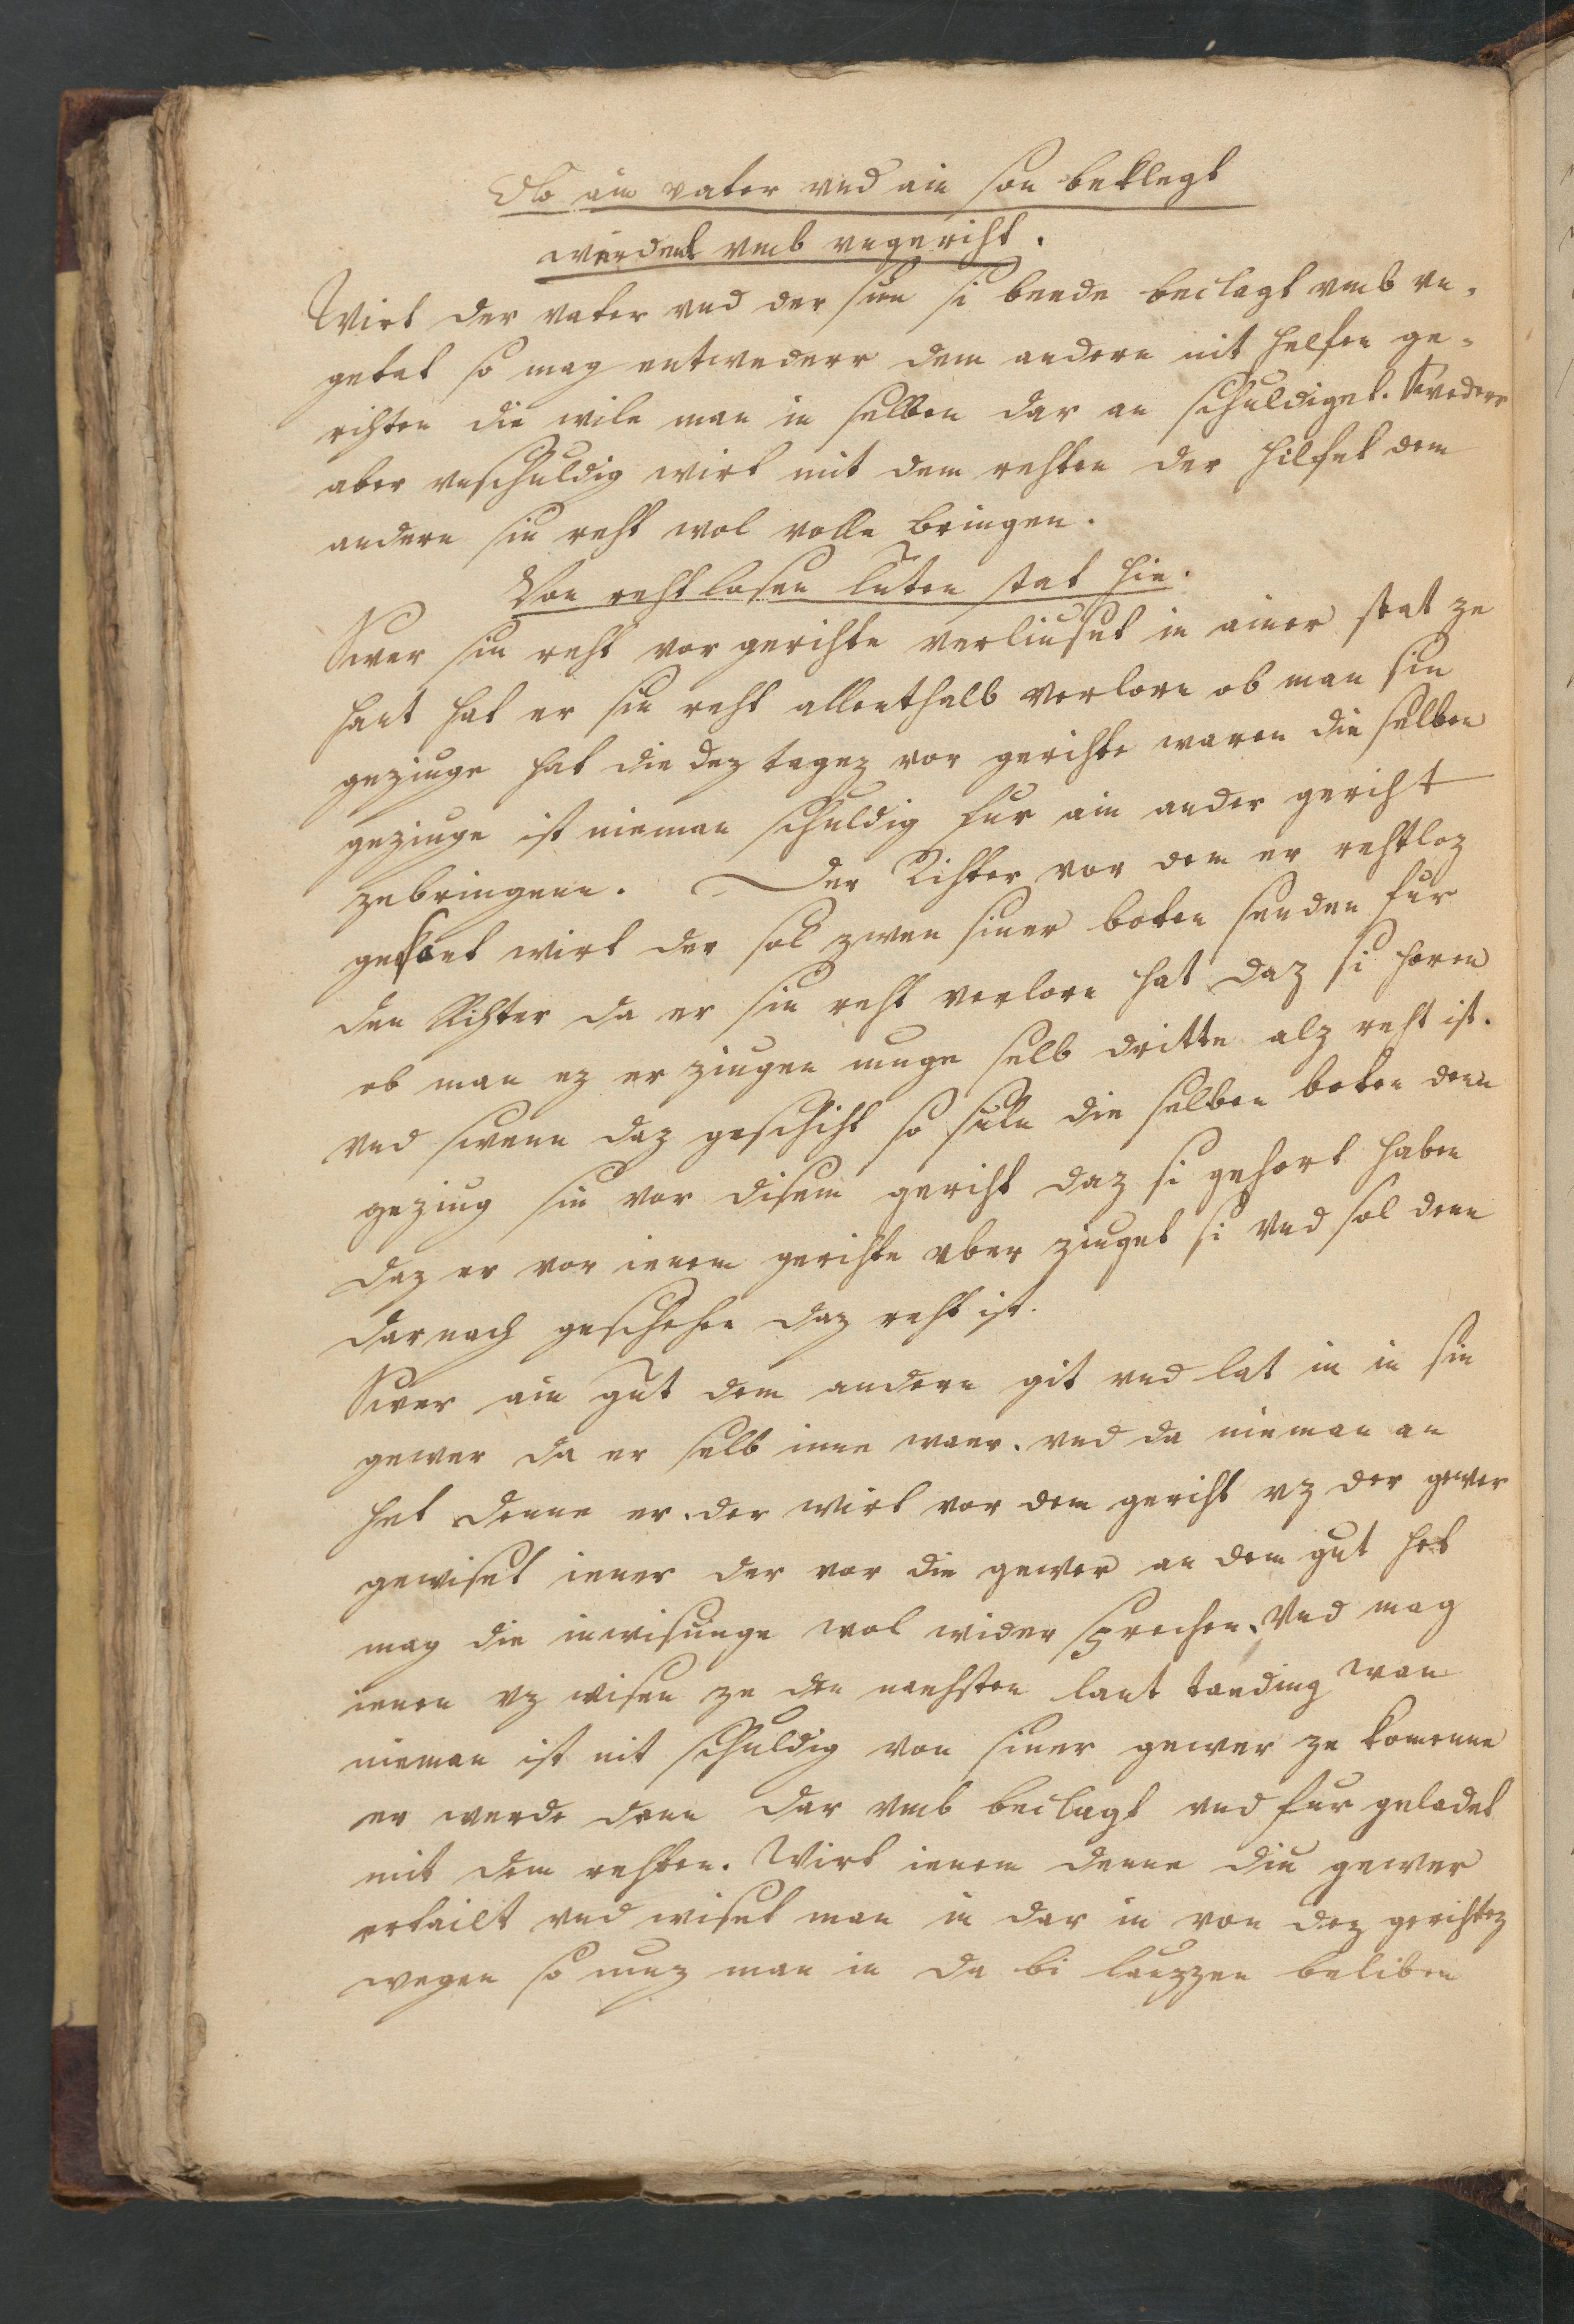 Ob ain vater vnd ain son beklegt
werdent vmb vngeriht.
Wirt der vater vnd der sun si beede beclagt vmb vn-
getat so mag entwederr dem andern nit helfen ge-
rihten die wile man in selben dar an schuldiget. Swederr
aber vnschuldig wirt mit dem rehten der hilfet dem
andern sin reht wol volle bringen.
Von rehtlosen luten stat hie.
Swer sin reht vor gerihte verliuset in ainer stat ze
hant hat er sin reht allenthalb verlorn ob man sin
geziuge hat die dez tagez vor gerihte waren die selben
geziuge ist nieman schuldig fur ain ander geriht
zebringenn. Der Rihter vor dem er rehtloz
wirt der sol zwen siner boten senden fur
den Rihter da er sin reht verlorn hat daz si horen
ob man ez er ziugen muge selb dritte alz reht ist.
vnd swenn daz geschiht so suln die selben boten denn
geziug sin vor disem geriht daz si gehort haben
daz er vor ienem gerihte vber ziuget si vnd sol denn
darnach geschehen daz reht ist.
Swer ain gut dem andern git vnd lat in in sin
gewer da er selb inne waer. vnd da nieman an
hat denne er. der wirt vor dem geriht vz der gewer
gewiset iener der vor die gewer an dem gut het
mag die inwisunge wol wider sprechen. Vnd mag
ienen vz wisen ze den naehsten lant taeding wan
nieman ist nit schuldig von siner gewer ze komenne
er werde denn dar vmb beclagt vnd fur geladet
mit dem rehten. Wirt ienem denne diu gewer
ertailt vnd wiset man in dar in von dez gerihtez
wegen so muz man in da bi lauzzen beliben